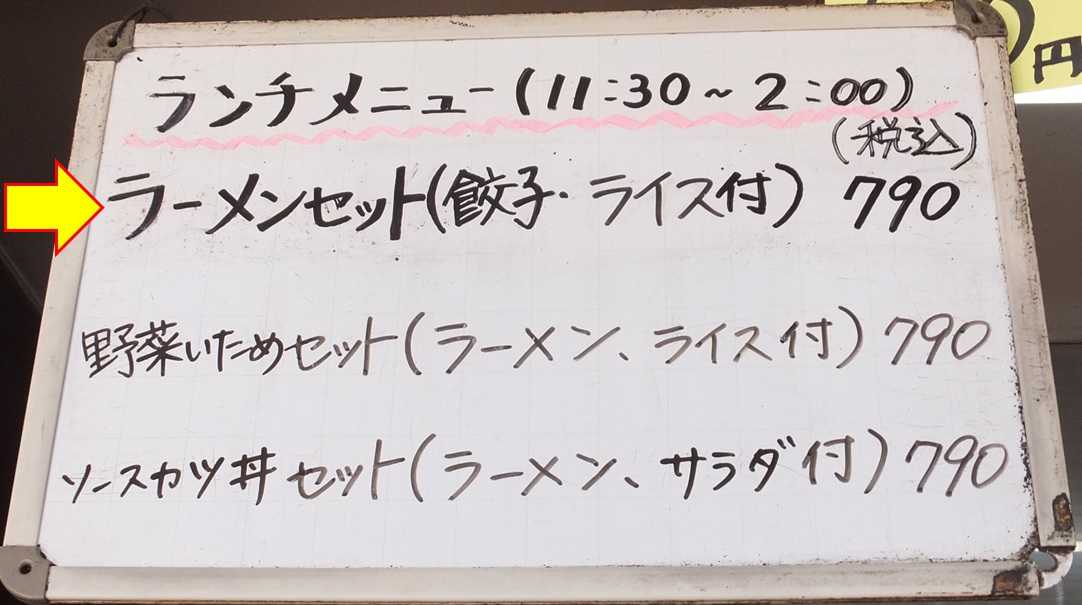 円
ランチメニュー(11:30~2:00)
(税込)
ラーメンセット(餃子・ライス付) 790
野菜いためセット(ラーメン、ライス付) 790
ソースカツ丼セット(ラーメン、サラダ付) 790